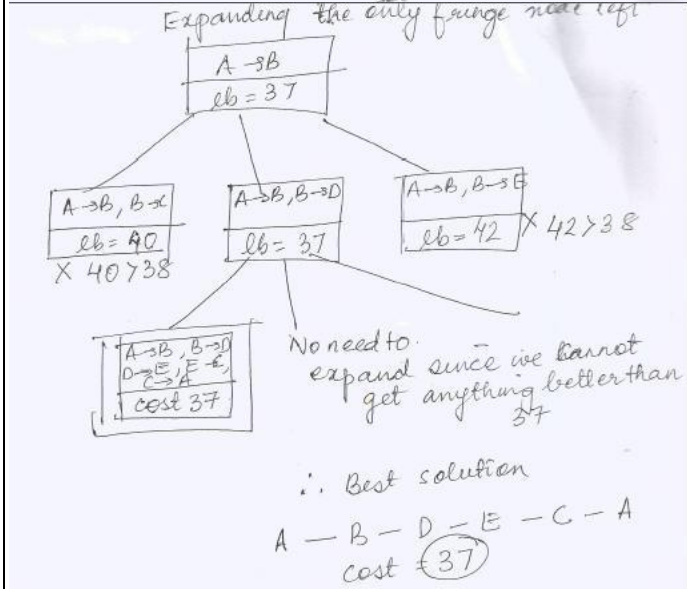 Expanding the only fringe node left
A→B
lb = 37
A→B, B→C
lb = 40
X 40>38
A→B, B→D
lb = 37
A→B, B→E
lb = 42
X 42>38
A→B, B→D
D→E, E→C,
C→A
cost 37
No need to
expand since we cannot
get anything better than
37
∴ Best solution
A — B — D — E — C — A
cost = 37